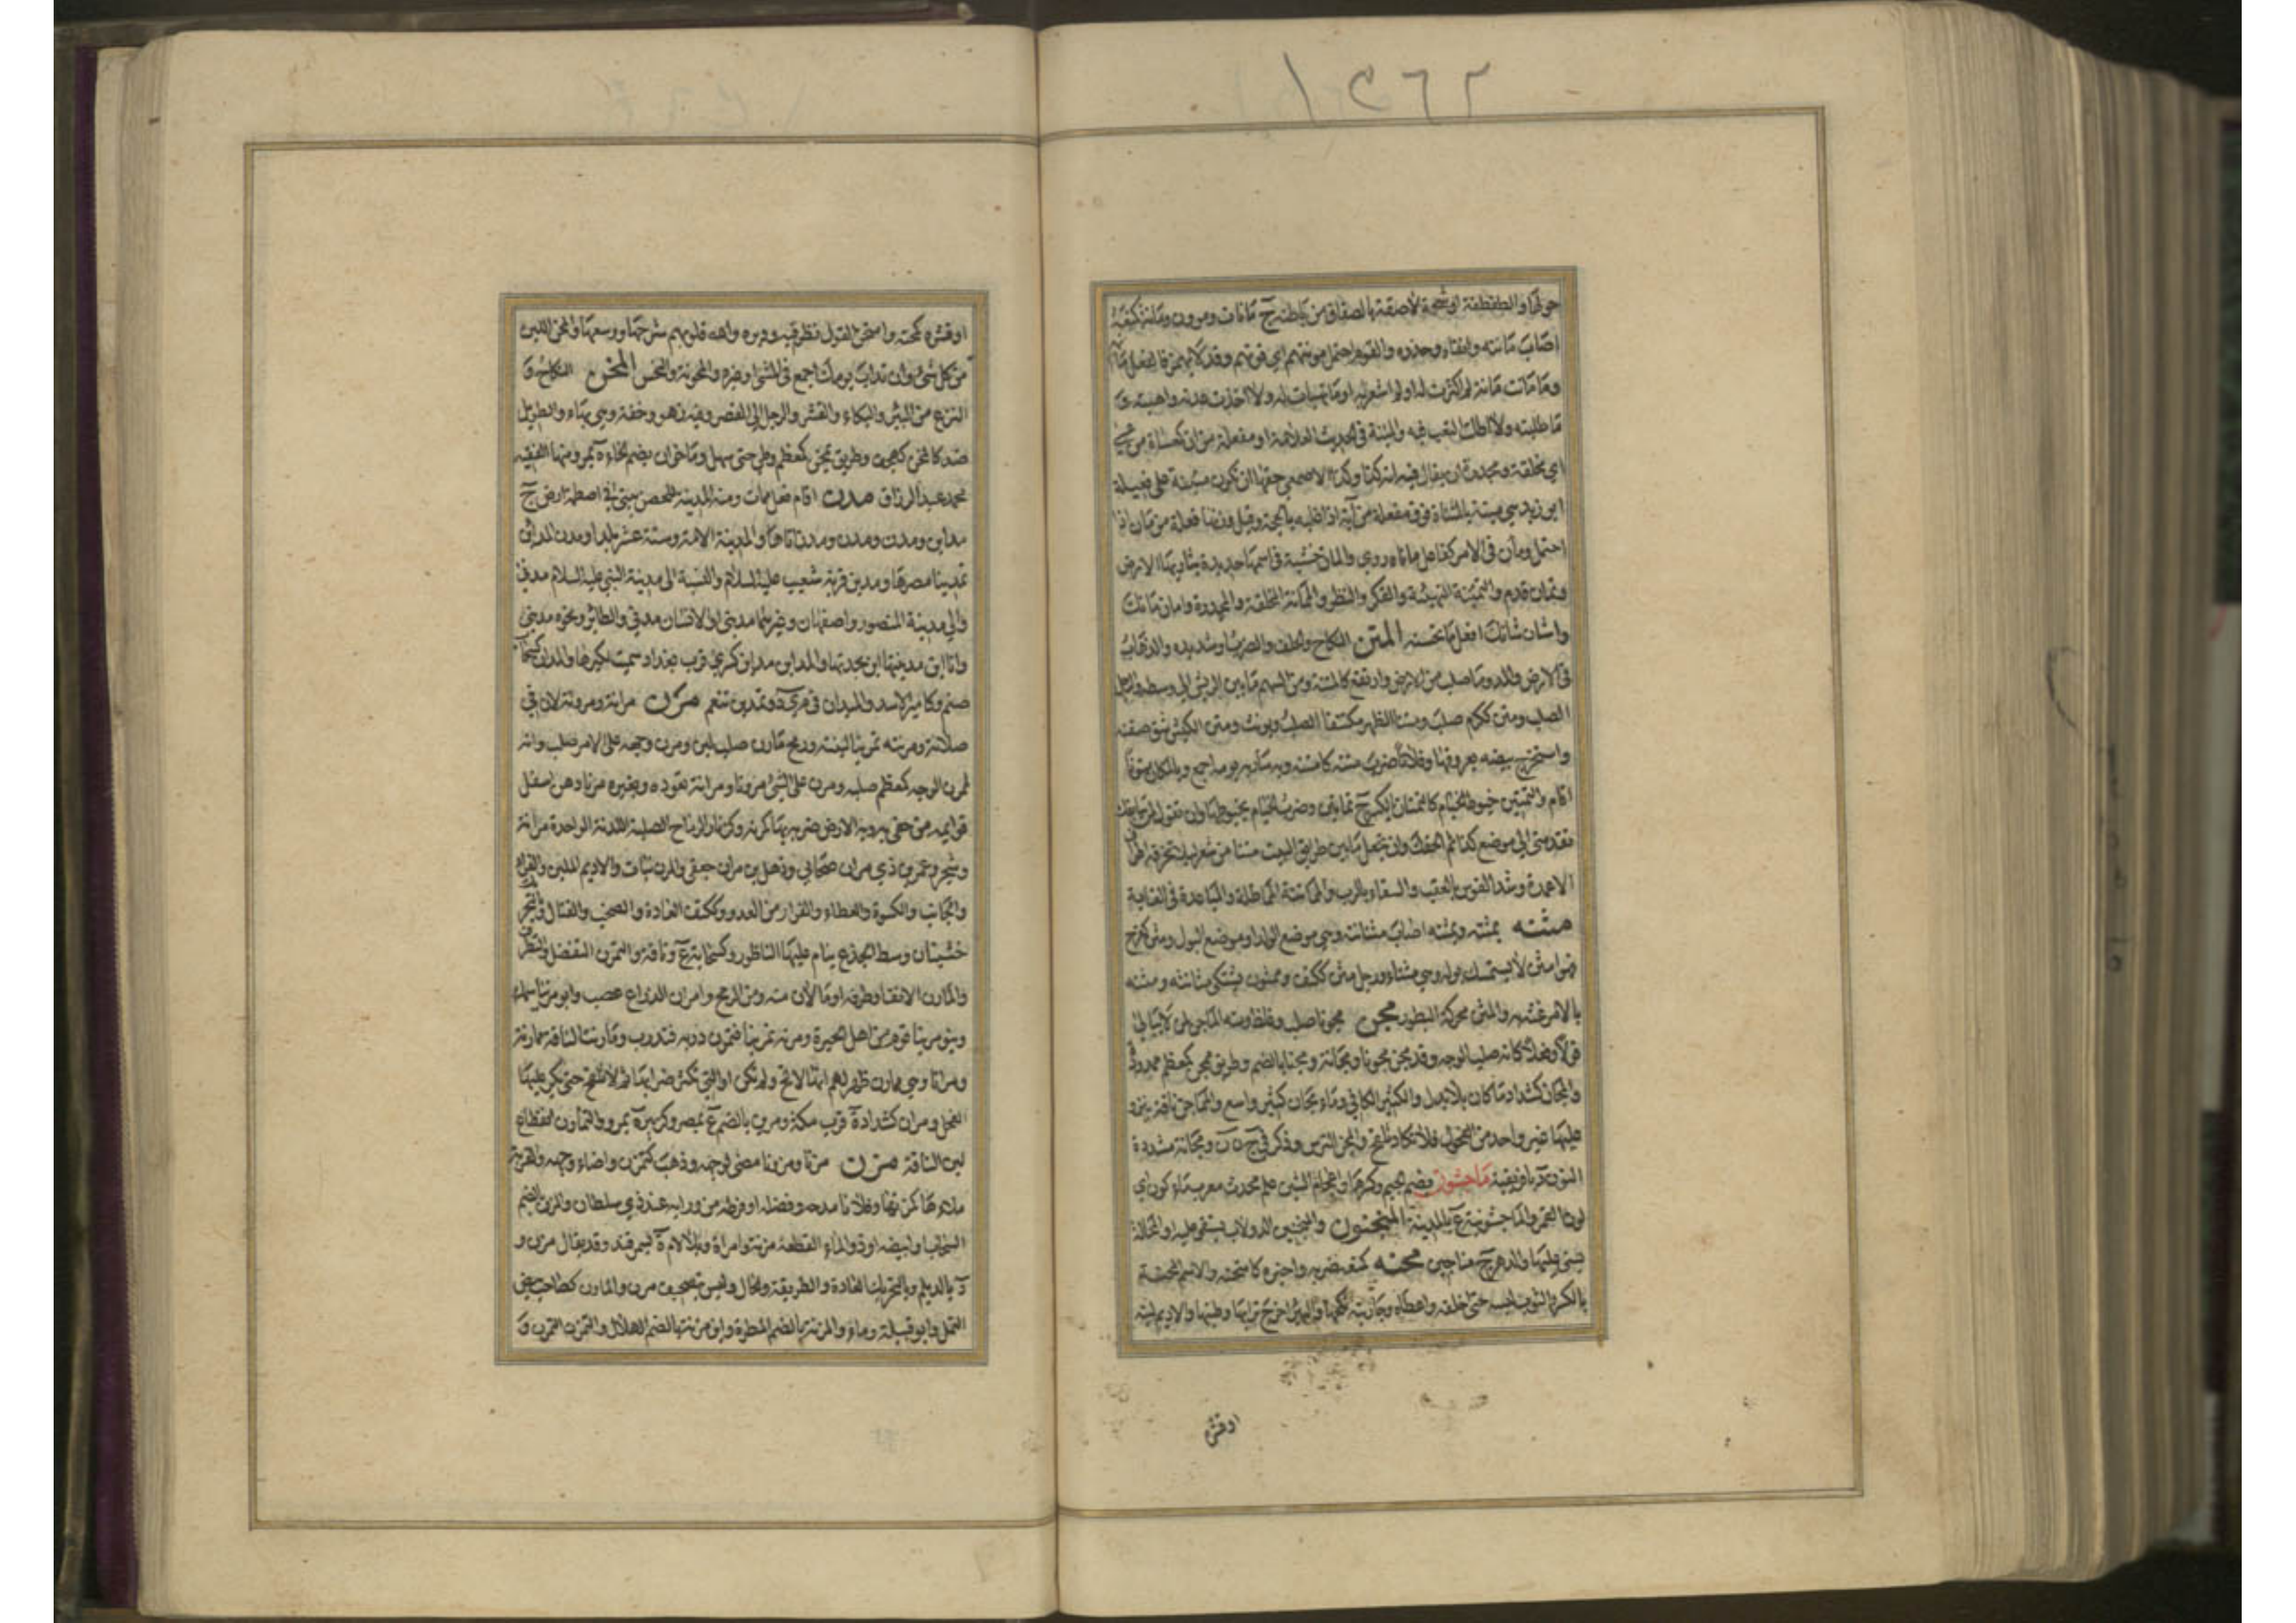 حولها والطفطفة او شحمة لاصقة بالصفاق من باطنه ج مانات ومؤون ومانه كمنعه
اصاب مانته واتقاه وحذره والقوم احتمل مونتهم اي قوتهم وقد لا يهمز فالفعل مانهم
وما مانت مانه لم اكترث له او لم اشعر به او ما تهيات له ولا اخذت عدته واهبته و
ما طلبته ولا اطلت التعب فيه والمئنة في الحديث العلامة او مفعلة من ان كمعساة من عسى
اي مخلقة ومجدرة ان يقال فيه انه كذا وكذا الاصمعي حقها ان تكون مئنة على فعيلة
ابو زيد هي مئتة بالمثناة فوق مفعلة من اته اذا غلبه بالحجة وقيل وزنها فعلة من مان اذا
احتمل ومان في الامر كفاعل ماناه روي والمان خشبة في راسها حديدة يثار بها الارض
وتمان قدم والتمئنة التهيئة والفكر والنظر والمانة المخلقة والمجدرة وامان مانك
واشان شانك افعل ما تحسنه المتن النكاح والحلف والضرب او شديده والذهاب
في الارض والمد وما صلب من الارض وارتفع كالمتنة ومن السهم ما بين الريش الى وسطه والرجل
الصلب ومتن ككرم صلب ومتنا الظهر مكتنفا الصلب ويونث ومتن الكبش شق صفنه
واستخرج بيضه بعروقها وفلانا ضرب متنه كامتنه وبه سار به يومه اجمع وبالمكان متونا
اقام والتمتين خيوط الخيام كالتمتان بالكسر ج تماتين وضرب الخيام بخيوطها وان تقول لمن سابقك
تقدمني الى موضع كذا ثم الحقك وان تجعل ما بين طرائق البيت متنا من شعر لئلا تمزقه اطراف
الاعمدة وشد القوس بالعقب والسقاء بالرب والمماتنة المماطلة والمباعدة في الغاية
مثنه يمثنه ويمثنه اصاب مثانته وهي موضع الولد او موضع البول ومثن كفرح
فهو امثن لا يستمسك بوله وهي مثناء ورجل مثن ككتف وممثون يشتكي مثانته ومثنه
بالامر غته به والمثن محركة البظور مجن مجونا صلب وغلظ ومنه الماجن لمن لا يبالي
قولا وفعلا كانه صلب الوجه وقد مجن مجونا ومجانة ومجنا بالضم وطريق ممجن كمعظم ممدود
والمجان كشداد ما كان بلا بدل والكثير الكافي وماء مجان كثير واسع والمماجن ناقة ينزو
عليها غير واحد من الفحول فلا تكاد تلقح والمجن الترس وذكر في ج ن ن ومجانة مشددة
النون د بافريقية ماجشون بضم الجيم وكسرها واعجام الشين علم محدث معرب ماه كون اي
لون القمر والماجشونية ع بالمدينة المنجنون والمنجنين الدولاب يستقى عليه او المحالة
يسنى عليها والدهر ج مناجين محنه كمنعه ضربه واختبره كامتحنه والاسم المحنة
بالكسر والثوب لبسه حتى اخلقه واعطاه وجاريته نكحها والبئر اخرج ترابها وطينها والاديم لينه
اوقشره
او قشره كمحنه وامتحن القول نظر فيه ودبره والله قلوبهم شرحها ووسعها والمحن اللين
من كل شيء وان تداب يومك اجمع في المشي او غيره والمحونة والمحن المخن النكاح و
النزع من البئر والبكاء والقشر والرجل الى القصر وفيه زهو وخفة وهي بهاء والطويل
ضد كالمخن كهجف وطريق ممخن كمعظم وطئ حتى سهل وماخوان بضم الخاء ة بمرو منها الفقيه
محمد عبد الرزاق مدن اقام فعل ممات ومنه المدينة للحصن يبنى في اصطمة ارض ج
مداين ومدن ومدن ومدن اتاها والمدينة الامة وستة عشر بلدا ومدن المداين
تمدينا مصرها ومدين قرية شعيب عليه السلام والنسبة الى مدينة النبي عليه السلام مدني
والى مدينة المنصور واصفهان وغيرهما مديني او الانسان مدني والطائر ونحوه مديني
وانا ابن مدينتها ابن بجدتها والمداين مدائن كسرى قرب بغداد سميت لكبرها والمدان كسحاب
صنم وكامير الاسد والميدان في م ي د وتمدين تنعم مرن مرانة ومرونة لان في
صلابة ومرنته تمرينا لينته ورمح مارن صلب لين ومرن وجهه على الامر صلب وانه
لممرن الوجه كمعظم صلبه ومرن على الشيء مرونا ومرانة تعوده وبعيره مرنا دهن اسفل
قوايمه من حفى به وبه الارض ضربه بها كمرنه وكزنار الرماح الصلبة اللدنة الواحدة مرانة
وشجر وعمير بن ذي مران صحابي وذهل بن مران جعفي والمرن نبات والاديم اللين والفراء
والجانب والكسوة والعطاء والفرار من العدو وككتف العادة والصخب والقتال والمجر
خشبتان وسط الجذع ينام عليها الناطور وكسحابة ع وناقة والتمرن التفضل والتظرف
والمارن الانف او طرفه او ما لان منه ومن الرمح وامران الذراع عصب وابو مرينا سمك
وبنو مرينا قوم من اهل الحيرة ومرنه تمرينا فتمرن دربه فتدرب ومارنت الناقة ممارنة
ومرانا وهي ممارن ظهر لهم انها لاقح ولم تكن او التي تكثر ضرابها ثم لا تلقح حتى يكر عليها
الفحل ومران كشداد ة قرب مكة ومرين بالضم ع بمصر وكزبير ة بمرو والتمارن انقطاع
لبن الناقة مزن مزنا ومزونا مضى لوجهه وذهب كتمزن واضاء وجهه والقربة
ملاها كمزنها وفلانا مدحه وفضله او قرظه من ورائه عند ذي سلطان والمزن بالضم
السحاب او ابيضه او ذو الماء القطعة مزنة وامراة وبلا لام ة بسمرقند وقد يقال مزن و
د بالديلم وبالتحريك العادة والطريقة والحال وليس بتصحيف مرن والمازن كصاحب بيض
النمل وابو قبيلة وماء والمزنة بالضم المطرة وابن مزنة بالضم الهلال والتمزن التمرن و